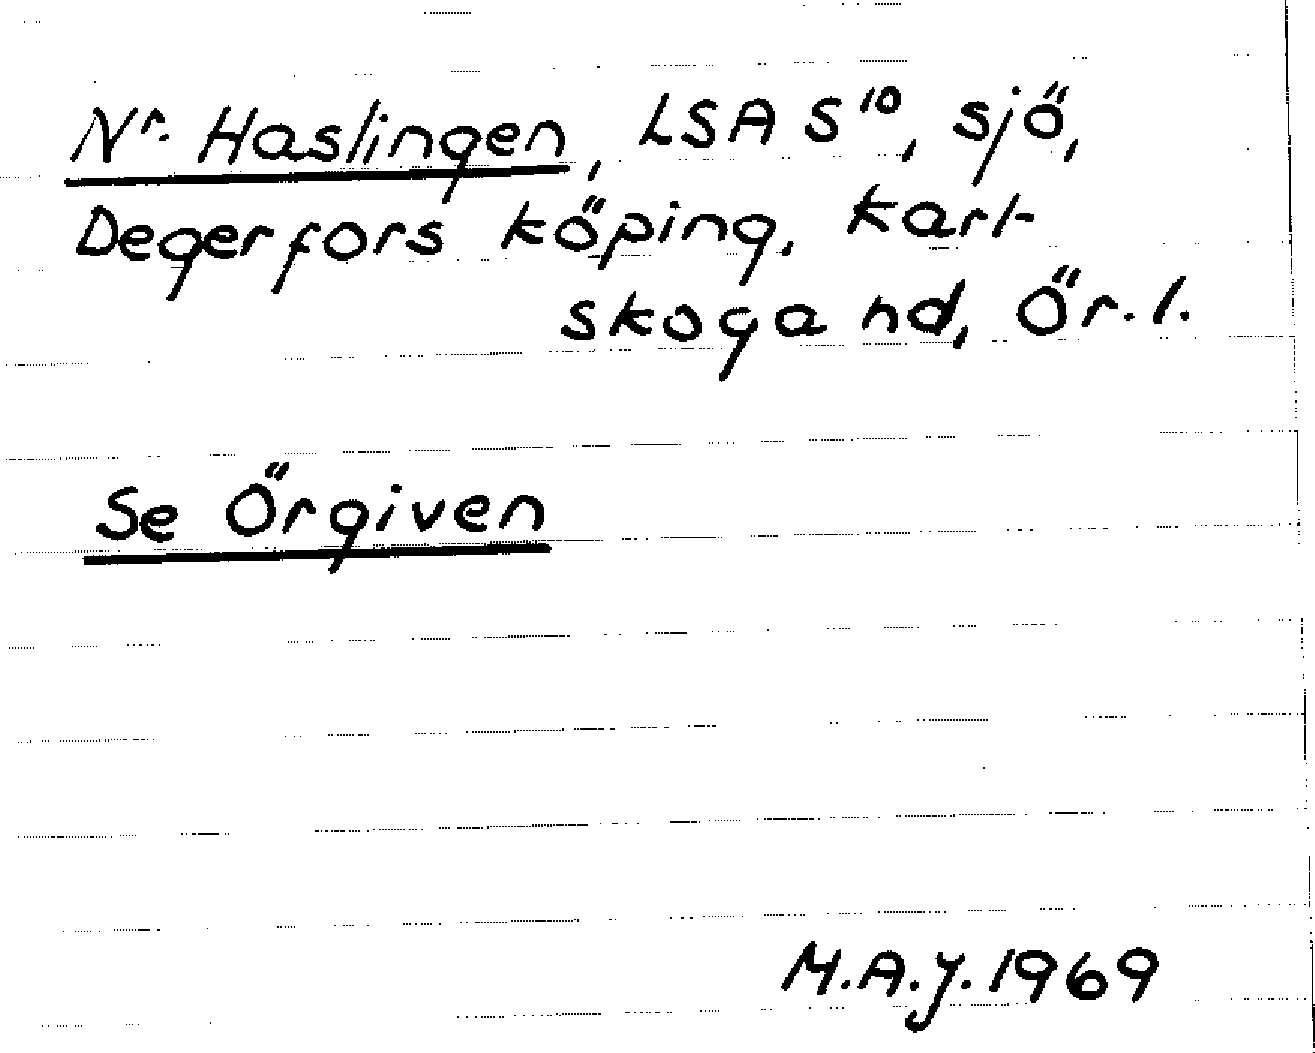 Nr. Haslingen, LSA S¹⁰, sjö,
Degerfors köping, Karl-
skoga hd, Ör. l.
Se Örgiven
M.A.J. 1969